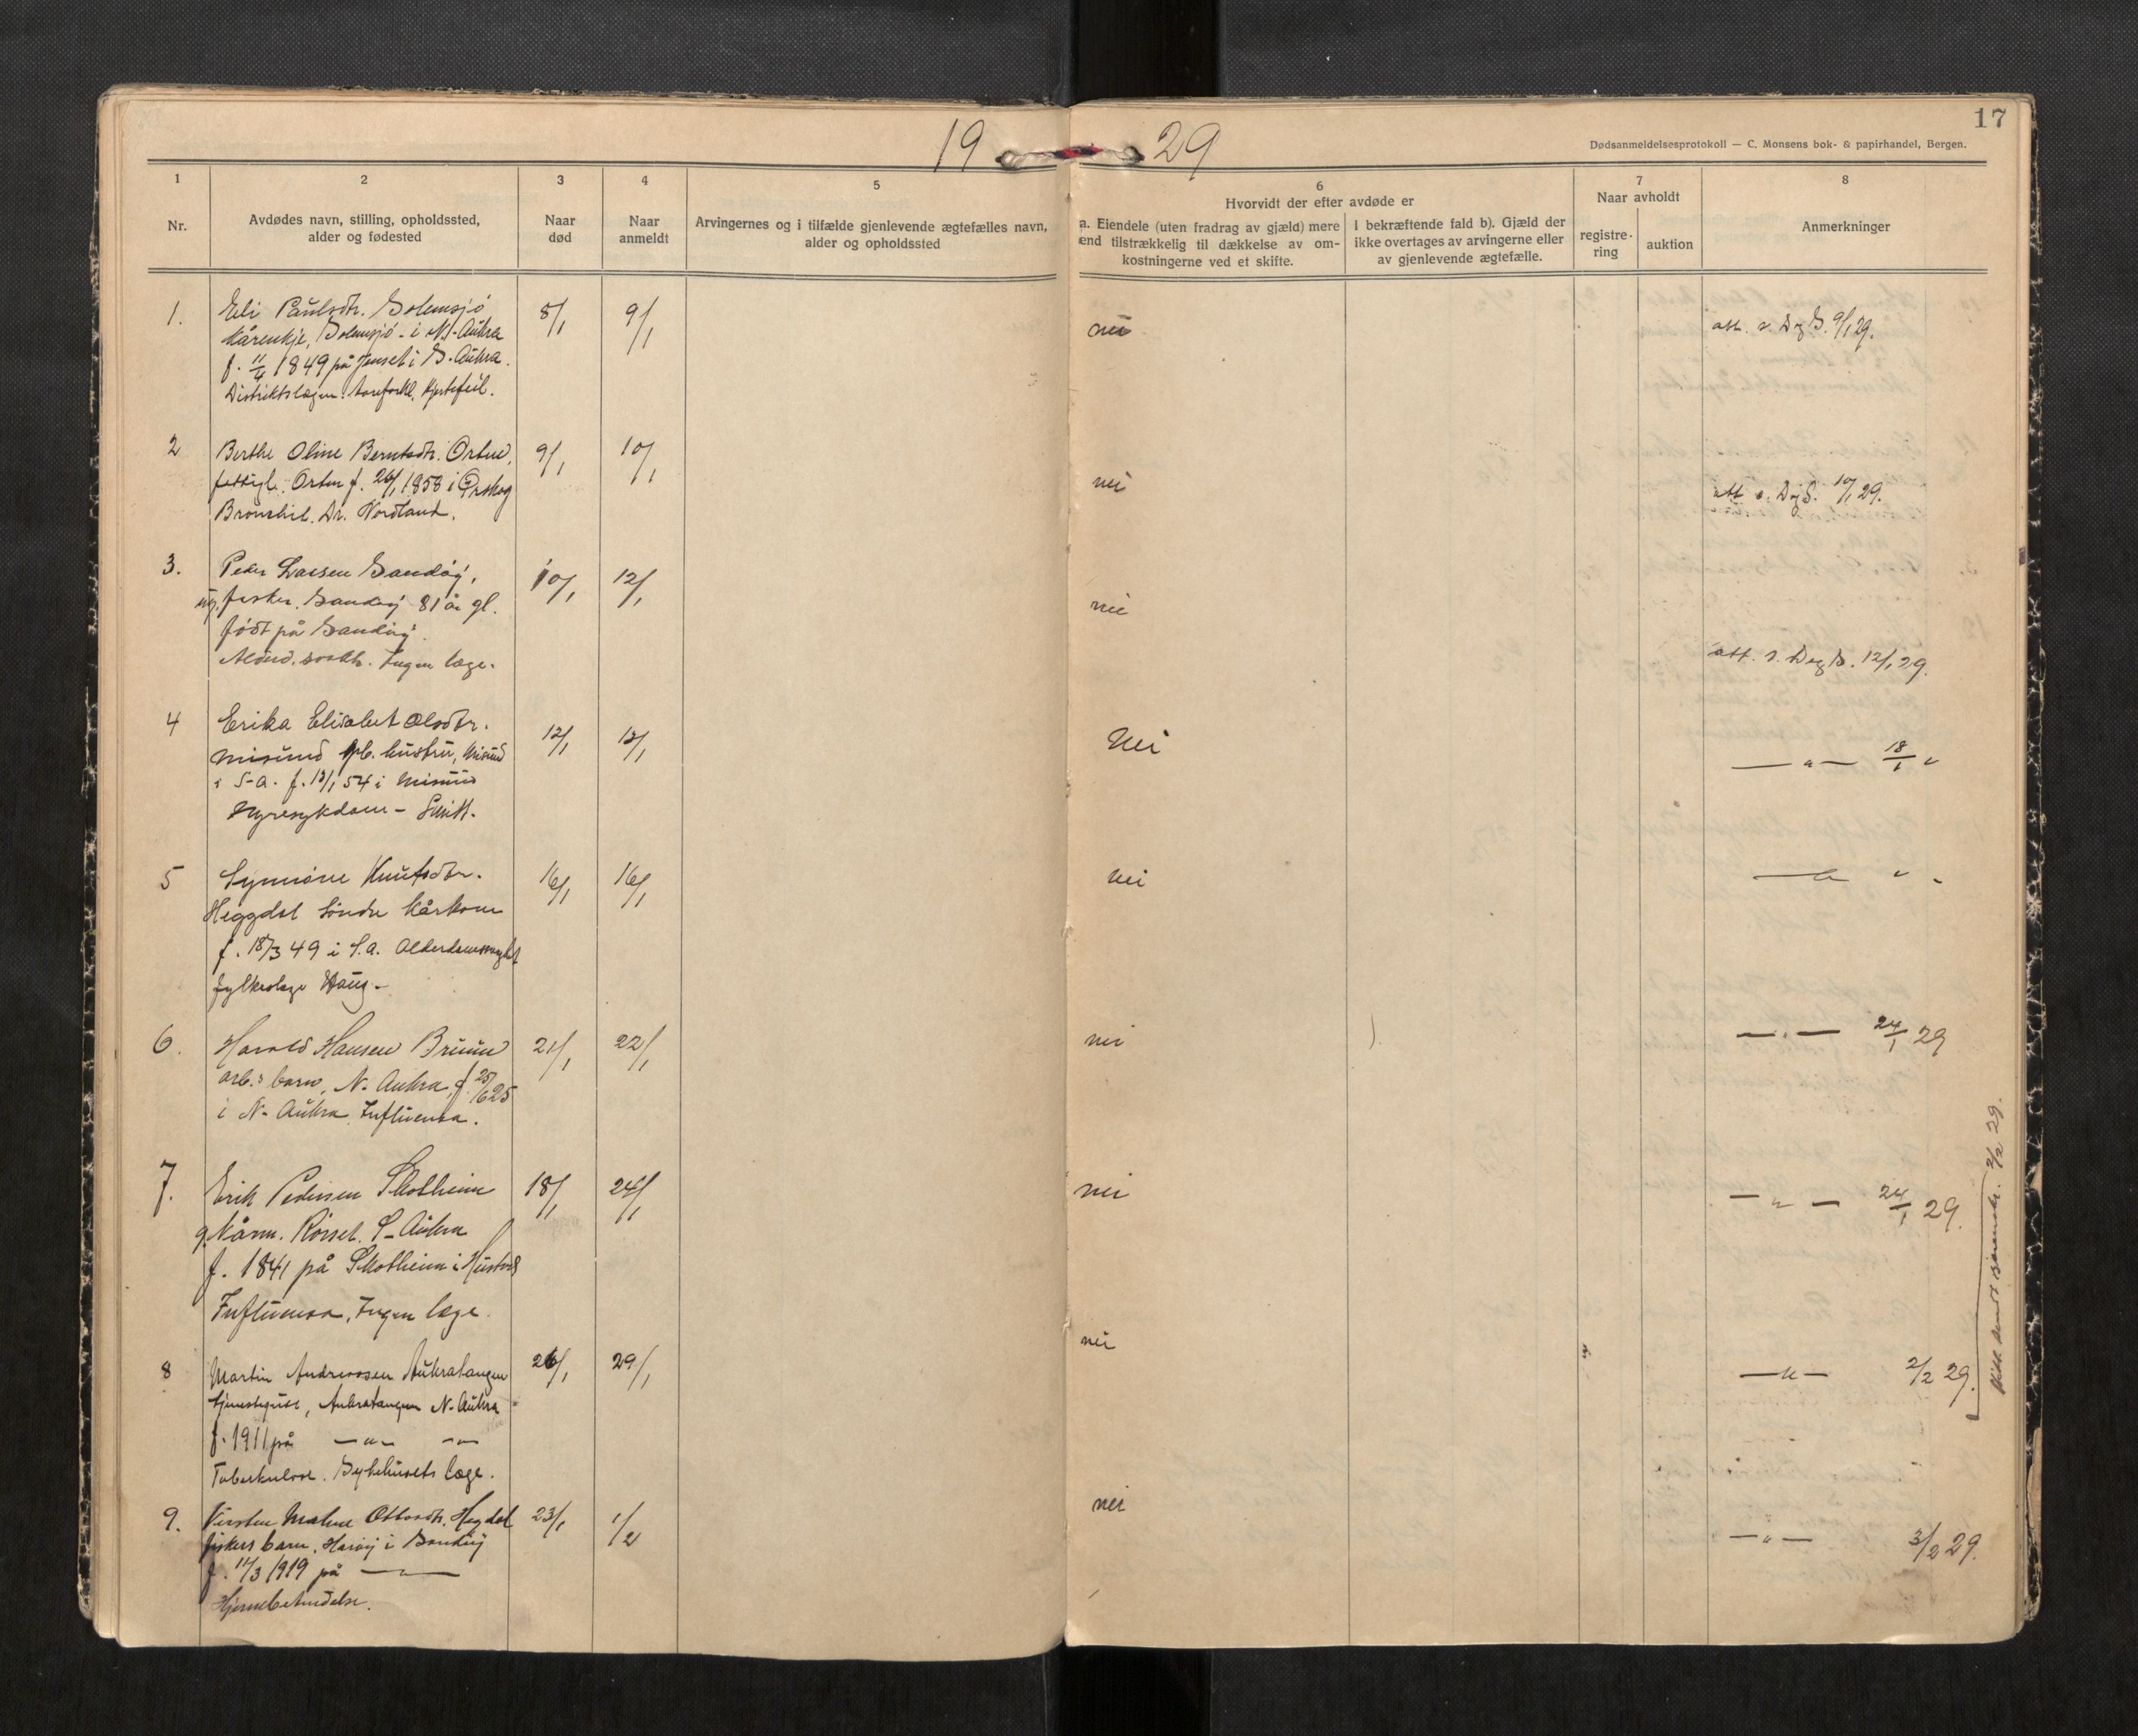 19 29
17
Dødsanmeldelsesprotokoll — C. Monsens bok- & papirhandel, Bergen.
1
Nr.
2
Avdødes navn, stilling, opholdssted,
alder og fødested
3
Naar
død
4
Naar
anmeldt
5
Arvingernes og i tilfælde gjenlevende ægtefælles navn,
alder og opholdssted
6
Hvorvidt der efter avdøde er
a. Eiendele (uten fradrag av gjæld) mere
end tilstrækkelig til dækkelse av om-
kostningerne ved et skifte.
I bekræftende fald b). Gjæld der
ikke overtages av arvingerne eller
av gjenlevende ægtefælle.
7
Naar avholdt
registre-
ring
auktion
8
Anmerkninger
1. Eli Paulsdtr. Solemsjö 8/1 9/1 nei att. s. D og S. 9/1 29.
kårenkje, Solemsjö - i N.-Aukra
f. 11/4 1849 på Jenset i S. Aukra.
Distriktslægen. Aareforkl. Hjertefeil.
2 Berthe Oline Berntsdtr. Orten, 9/1 10/1 nei att s. D og S. 10/1 29.
fattigl. Orten f. 26/1 1858 i Ørskog
Bronchit. Dr. Nordland.
3. Peder Larsen Sandöy, 10/1 12/1 nei att. s. D og S. 12/1 29.
ug. fisker. Sandöy 81 år gl.
født på Sandöy.
Alderd. svakh. Ingen læge.
4 Erika Elisabet Olsdtr. 12/1 18/1 Nei — " — 18/1 "
Misund hustru, Misund
i S-A. f. 13/1 54 i Misund
Nyresykdom -
5 Synnöve Knutsdtr. 16/1 16/1 nei — " — " "
Heggdal söndre kårkone
f. 18/3 49 i S.A. Alderdomssvaghet
fylkeslege
6. Harald Hansen Bruun 21/1 22/1 nei — " — 24/1 29
arb.s barn, N. Aukra, f. 25/6 25
i N- Aukra. Influensa.
7. Erik Pedersen Skotheim 18/1 24/1 nei — " — 24/1 29.
g. kårm. Rörset. S-Aukra
f. 1841 på Skotheim i Hustad
Influensa, Ingen læge
8 Martin Andreassen Aukratangen 26/1 29/1 nei — " — 2/2 29.
tjenestegutt, Aukratangen N-Aukra
f. 1911 på — " — — " —
Tuberkulose. Sykehusets læge.
2/2 29.
9. Kirsten Malene Ottosdtr. Hegdal 23/1 1/2 nei — " — 3/2 29.
fiskers barn. Haröy i Sandöy
f. 11/3 1919 på — " —
Hjernebetendelse.